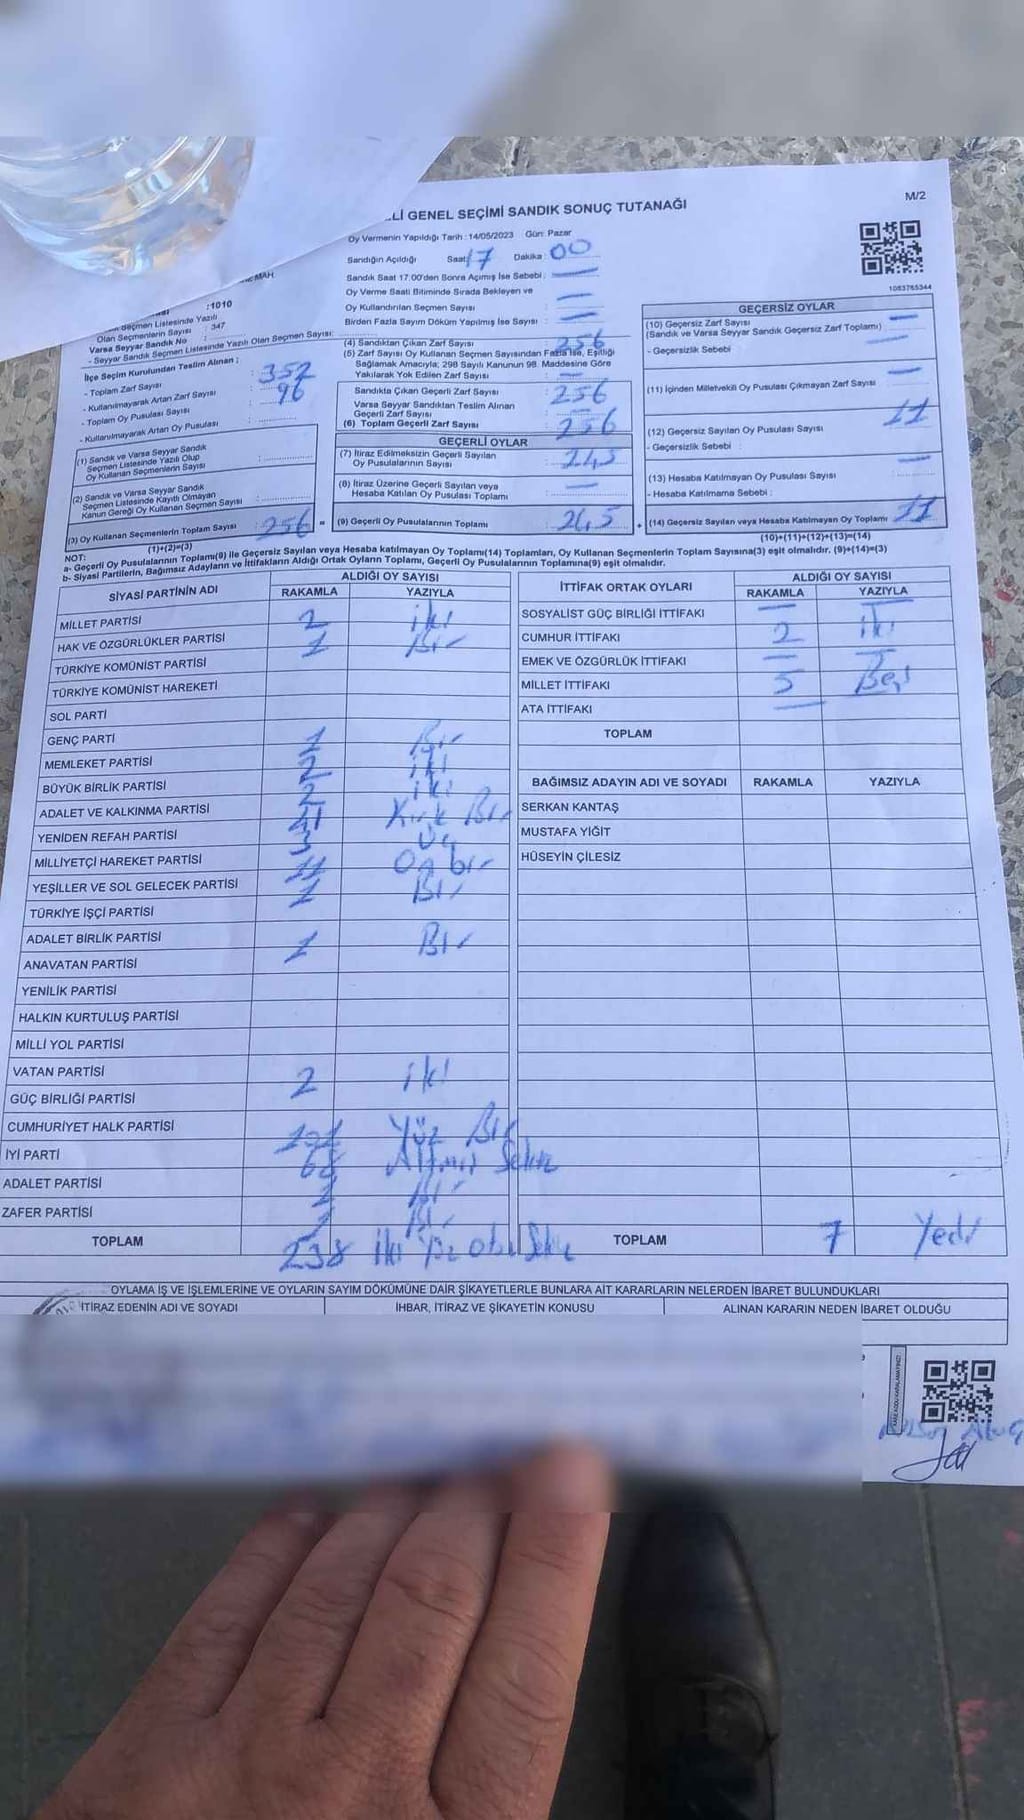 Lİ GENEL SEÇİMİ SANDIK SONUÇ TUTANAĞI
M/2
Oy Vermenin Yapıldığı Tarih : 14/05/2023 Gün: Pazar
Sandığın Açıldığı Saat: 17 Dakika : 00
Sandık Saat 17:00'den Sonra Açımış İse Sebebi : —
Oy Verme Saati Bitiminde Sırada Bekleyen ve
Oy Kullandırılan Seçmen Sayısı : —
Birden Fazla Sayım Döküm Yapılmış İse Sayısı : —
1083765344
MAH.
:1010
Seçmen Listesinde Yazılı
Olan Seçmenlerin Sayısı : 347
Varsa Seyyar Sandık No :
- Seyyar Sandık Seçmen Listesinde Yazılı Olan Seçmen Sayısı:
İlçe Seçim Kurulundan Teslim Alınan :
- Toplam Zarf Sayısı : 352
- Kullanılmayarak Artan Zarf Sayısı : 96
- Toplam Oy Pusulası Sayısı :
- Kullanılmayarak Artan Oy Pusulası :
(1) Sandık ve Varsa Seyyar Sandık
Seçmen Listesinde Yazılı Olup
Oy Kullanan Seçmenlerin Sayısı :
(2) Sandık ve Varsa Seyyar Sandık
Seçmen Listesinde Kayıtlı Olmayan
Kanun Gereği Oy Kullanan Seçmen Sayısı :
(3) Oy Kullanan Seçmenlerin Toplam Sayısı : 256 =
(1)+(2)=(3)
(4) Sandıktan Çıkan Zarf Sayısı : 256
(5) Zarf Sayısı Oy Kullanan Seçmen Sayısından Fazla İse, Eşitliği
Sağlamak Amacıyla; 298 Sayılı Kanunun 98. Maddesine Göre
Yakılarak Yok Edilen Zarf Sayısı : —
Sandıkta Çıkan Geçerli Zarf Sayısı : 256
Varsa Seyyar Sandıktan Teslim Alınan
Geçerli Zarf Sayısı : —
(6) Toplam Geçerli Zarf Sayısı : 256
GEÇERLİ OYLAR
(7) İtiraz Edilmeksizin Geçerli Sayılan
Oy Pusulalarının Sayısı : 245
(8) İtiraz Üzerine Geçerli Sayılan veya
Hesaba Katılan Oy Pusulası Toplamı : —
(9) Geçerli Oy Pusulalarının Toplamı : 245 +
GEÇERSİZ OYLAR
(10) Geçersiz Zarf Sayısı
(Sandık ve Varsa Seyyar Sandık Geçersiz Zarf Toplamı) : —
- Geçersizlik Sebebi :
(11) İçinden Milletvekili Oy Pusulası Çıkmayan Zarf Sayısı : —
(12) Geçersiz Sayılan Oy Pusulası Sayısı : 11
- Geçersizlik Sebebi :
(13) Hesaba Katılmayan Oy Pusulası Sayısı : —
- Hesaba Katılmama Sebebi :
(14) Geçersiz Sayılan veya Hesaba Katılmayan Oy Toplamı : 11
(10)+(11)+(12)+(13)=(14)
NOT:
a- Geçerli Oy Pusulalarının Toplamı(9) ile Geçersiz Sayılan veya Hesaba katılmayan Oy Toplamı(14) Toplamları, Oy Kullanan Seçmenlerin Toplam Sayısına(3) eşit olmalıdır. (9)+(14)=(3)
b- Siyasi Partilerin, Bağımsız Adayların ve İttifakların Aldığı Ortak Oyların Toplamı, Geçerli Oy Pusulalarının Toplamına(9) eşit olmalıdır.
SİYASİ PARTİNİN ADI ALDIĞI OY SAYISI
RAKAMLA YAZIYLA
MİLLET PARTİSİ 2 iki
HAK VE ÖZGÜRLÜKLER PARTİSİ 1 Bir
TÜRKİYE KOMÜNİST PARTİSİ
TÜRKİYE KOMÜNİST HAREKETİ
SOL PARTİ
GENÇ PARTİ 1 Bir
MEMLEKET PARTİSİ 2 iki
BÜYÜK BİRLİK PARTİSİ 2 iki
ADALET VE KALKINMA PARTİSİ 41 Kırk Bir
YENİDEN REFAH PARTİSİ 3 Üç
MİLLİYETÇİ HAREKET PARTİSİ 11 On bir
YEŞİLLER VE SOL GELECEK PARTİSİ 1 Bir
TÜRKİYE İŞÇİ PARTİSİ
ADALET BİRLİK PARTİSİ 1 Bir
ANAVATAN PARTİSİ
YENİLİK PARTİSİ
HALKIN KURTULUŞ PARTİSİ
MİLLİ YOL PARTİSİ
VATAN PARTİSİ 2 iki
GÜÇ BİRLİĞİ PARTİSİ
CUMHURİYET HALK PARTİSİ 101 Yüz Bir
İYİ PARTİ 68 Altmış Sekiz
ADALET PARTİSİ 1 Bir
ZAFER PARTİSİ 1 Bir
TOPLAM 238 İki Yüz otuz Sekiz
İTTİFAK ORTAK OYLARI ALDIĞI OY SAYISI
RAKAMLA YAZIYLA
SOSYALİST GÜÇ BİRLİĞİ İTTİFAKI — —
CUMHUR İTTİFAKI 2 iki
EMEK VE ÖZGÜRLÜK İTTİFAKI — —
MİLLET İTTİFAKI 5 Beş
ATA İTTİFAKI —
TOPLAM
BAĞIMSIZ ADAYIN ADI VE SOYADI RAKAMLA YAZIYLA
SERKAN KANTAŞ
MUSTAFA YİĞİT
HÜSEYİN ÇİLESİZ
TOPLAM 7 Yedi
OYLAMA İŞ VE İŞLEMLERİNE VE OYLARIN SAYIM DÖKÜMÜNE DAİR ŞİKAYETLERLE BUNLARA AİT KARARLARIN NELERDEN İBARET BULUNDUKLARI
İTİRAZ EDENİN ADI VE SOYADI İHBAR, İTİRAZ VE ŞİKAYETİN KONUSU ALINAN KARARIN NEDEN İBARET OLDUĞU